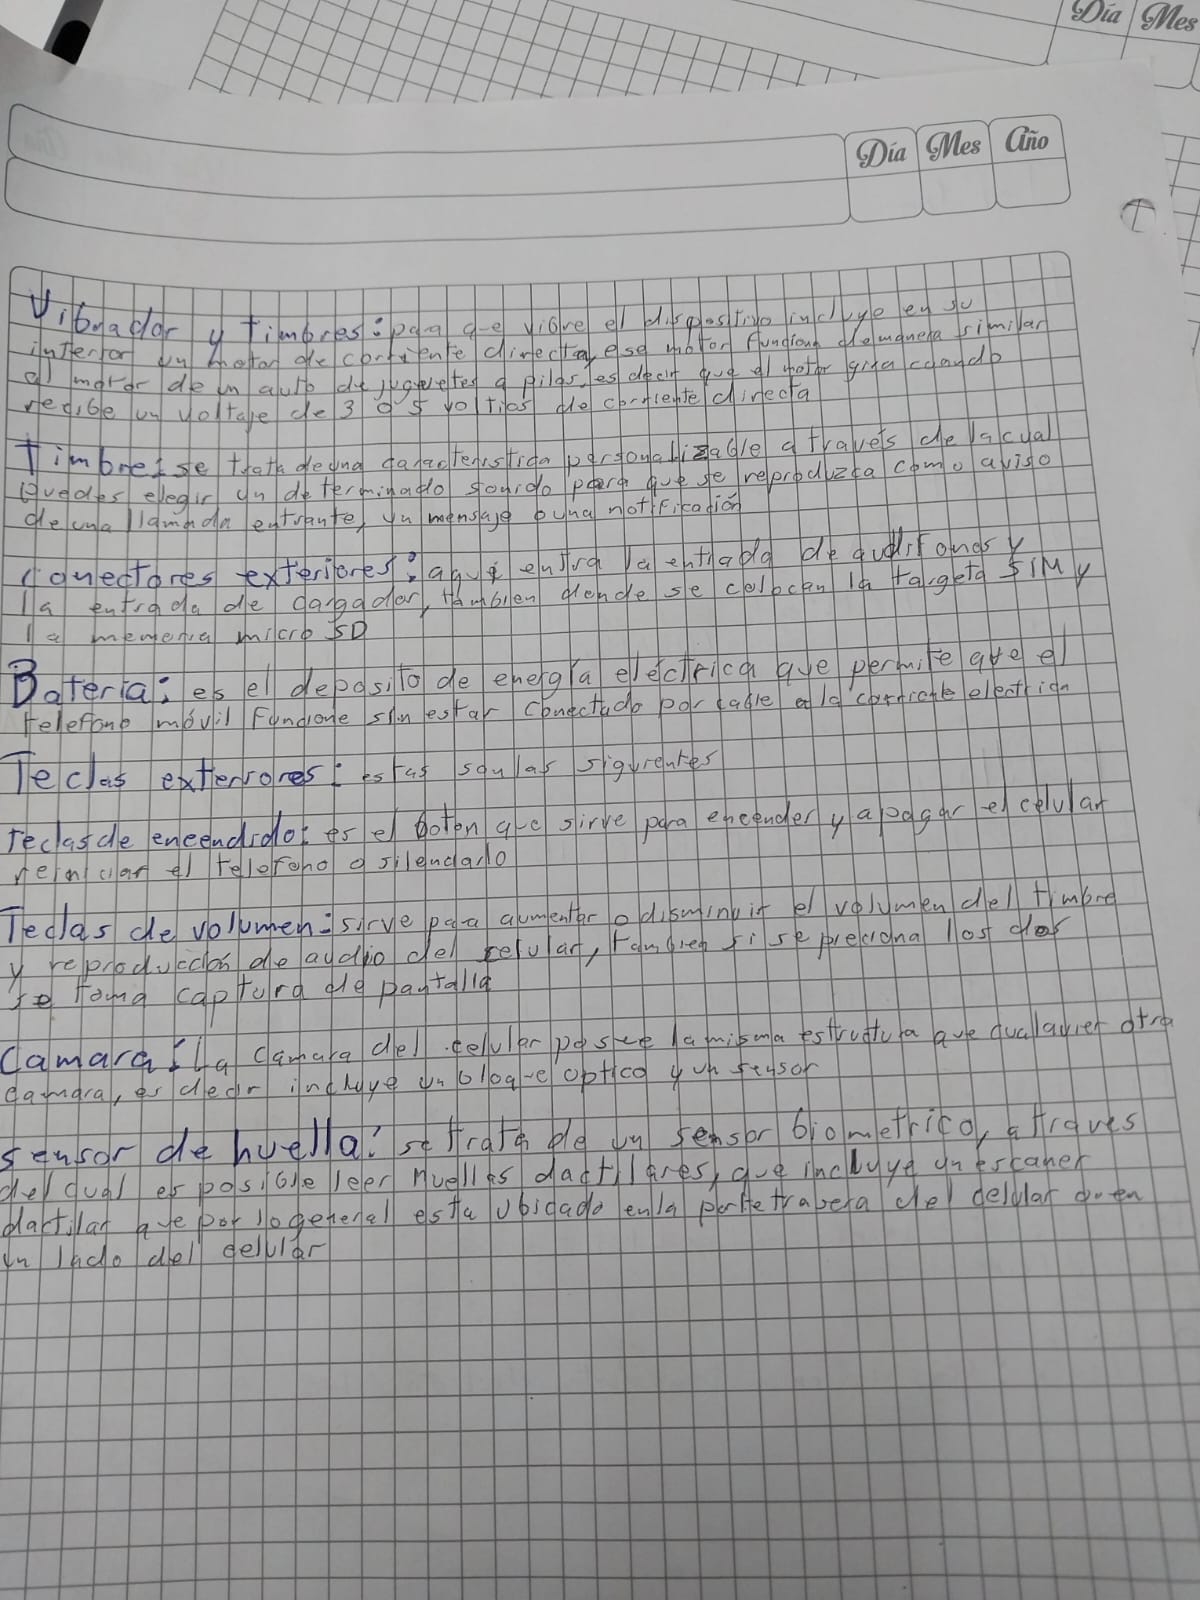 Día Mes
Día Mes Año
Vibrador y timbres: para que vibre el dispositivo incluye en su
interior un motor de corriente directa, ese motor funciona de manera similar
al motor de un auto de juguetes a pilas, es decir que el motor gira cuando
recibe un voltaje de 3 o 5 voltios de corriente directa
Timbre: se trata de una caracteristica personalizable a través de la cual
puedes elegir un determinado sonido para que se reproduzca como aviso
de una llamada entrante, un mensaje o una notificación
Conectores exteriores: aqui entra la entrada de audifonos y
la entrada de cargador, tambien donde se colocan la targeta SIM y
la memoria micro SD
Bateria: es el deposito de energía eléctrica que permite que el
telefono móvil funcione sin estar conectado por cable a la corriente electrica
Teclas exteriores: estas son las siguientes
teclas de encendido: es el boton que sirve para encender y apagar el celular
reiniciar el telefono o silenciarlo
Teclas de volumen: sirve para aumentar o disminuir el volumen del timbre
y reproducción de audio del celular, tambien si se preciona los dos
se toma captura de pantalla
Camara: La camara del celular posee la misma estructura que cualquier otra
camara, es decir incluye un bloque optico y un sensor
sensor de huella: se trata de un sensor biometrico, a traves
del cual es posible leer huellas dactilares, que incluye un escaner
dactilar que por lo general esta ubicado en la parte trasera del celular o en
un lado del celular